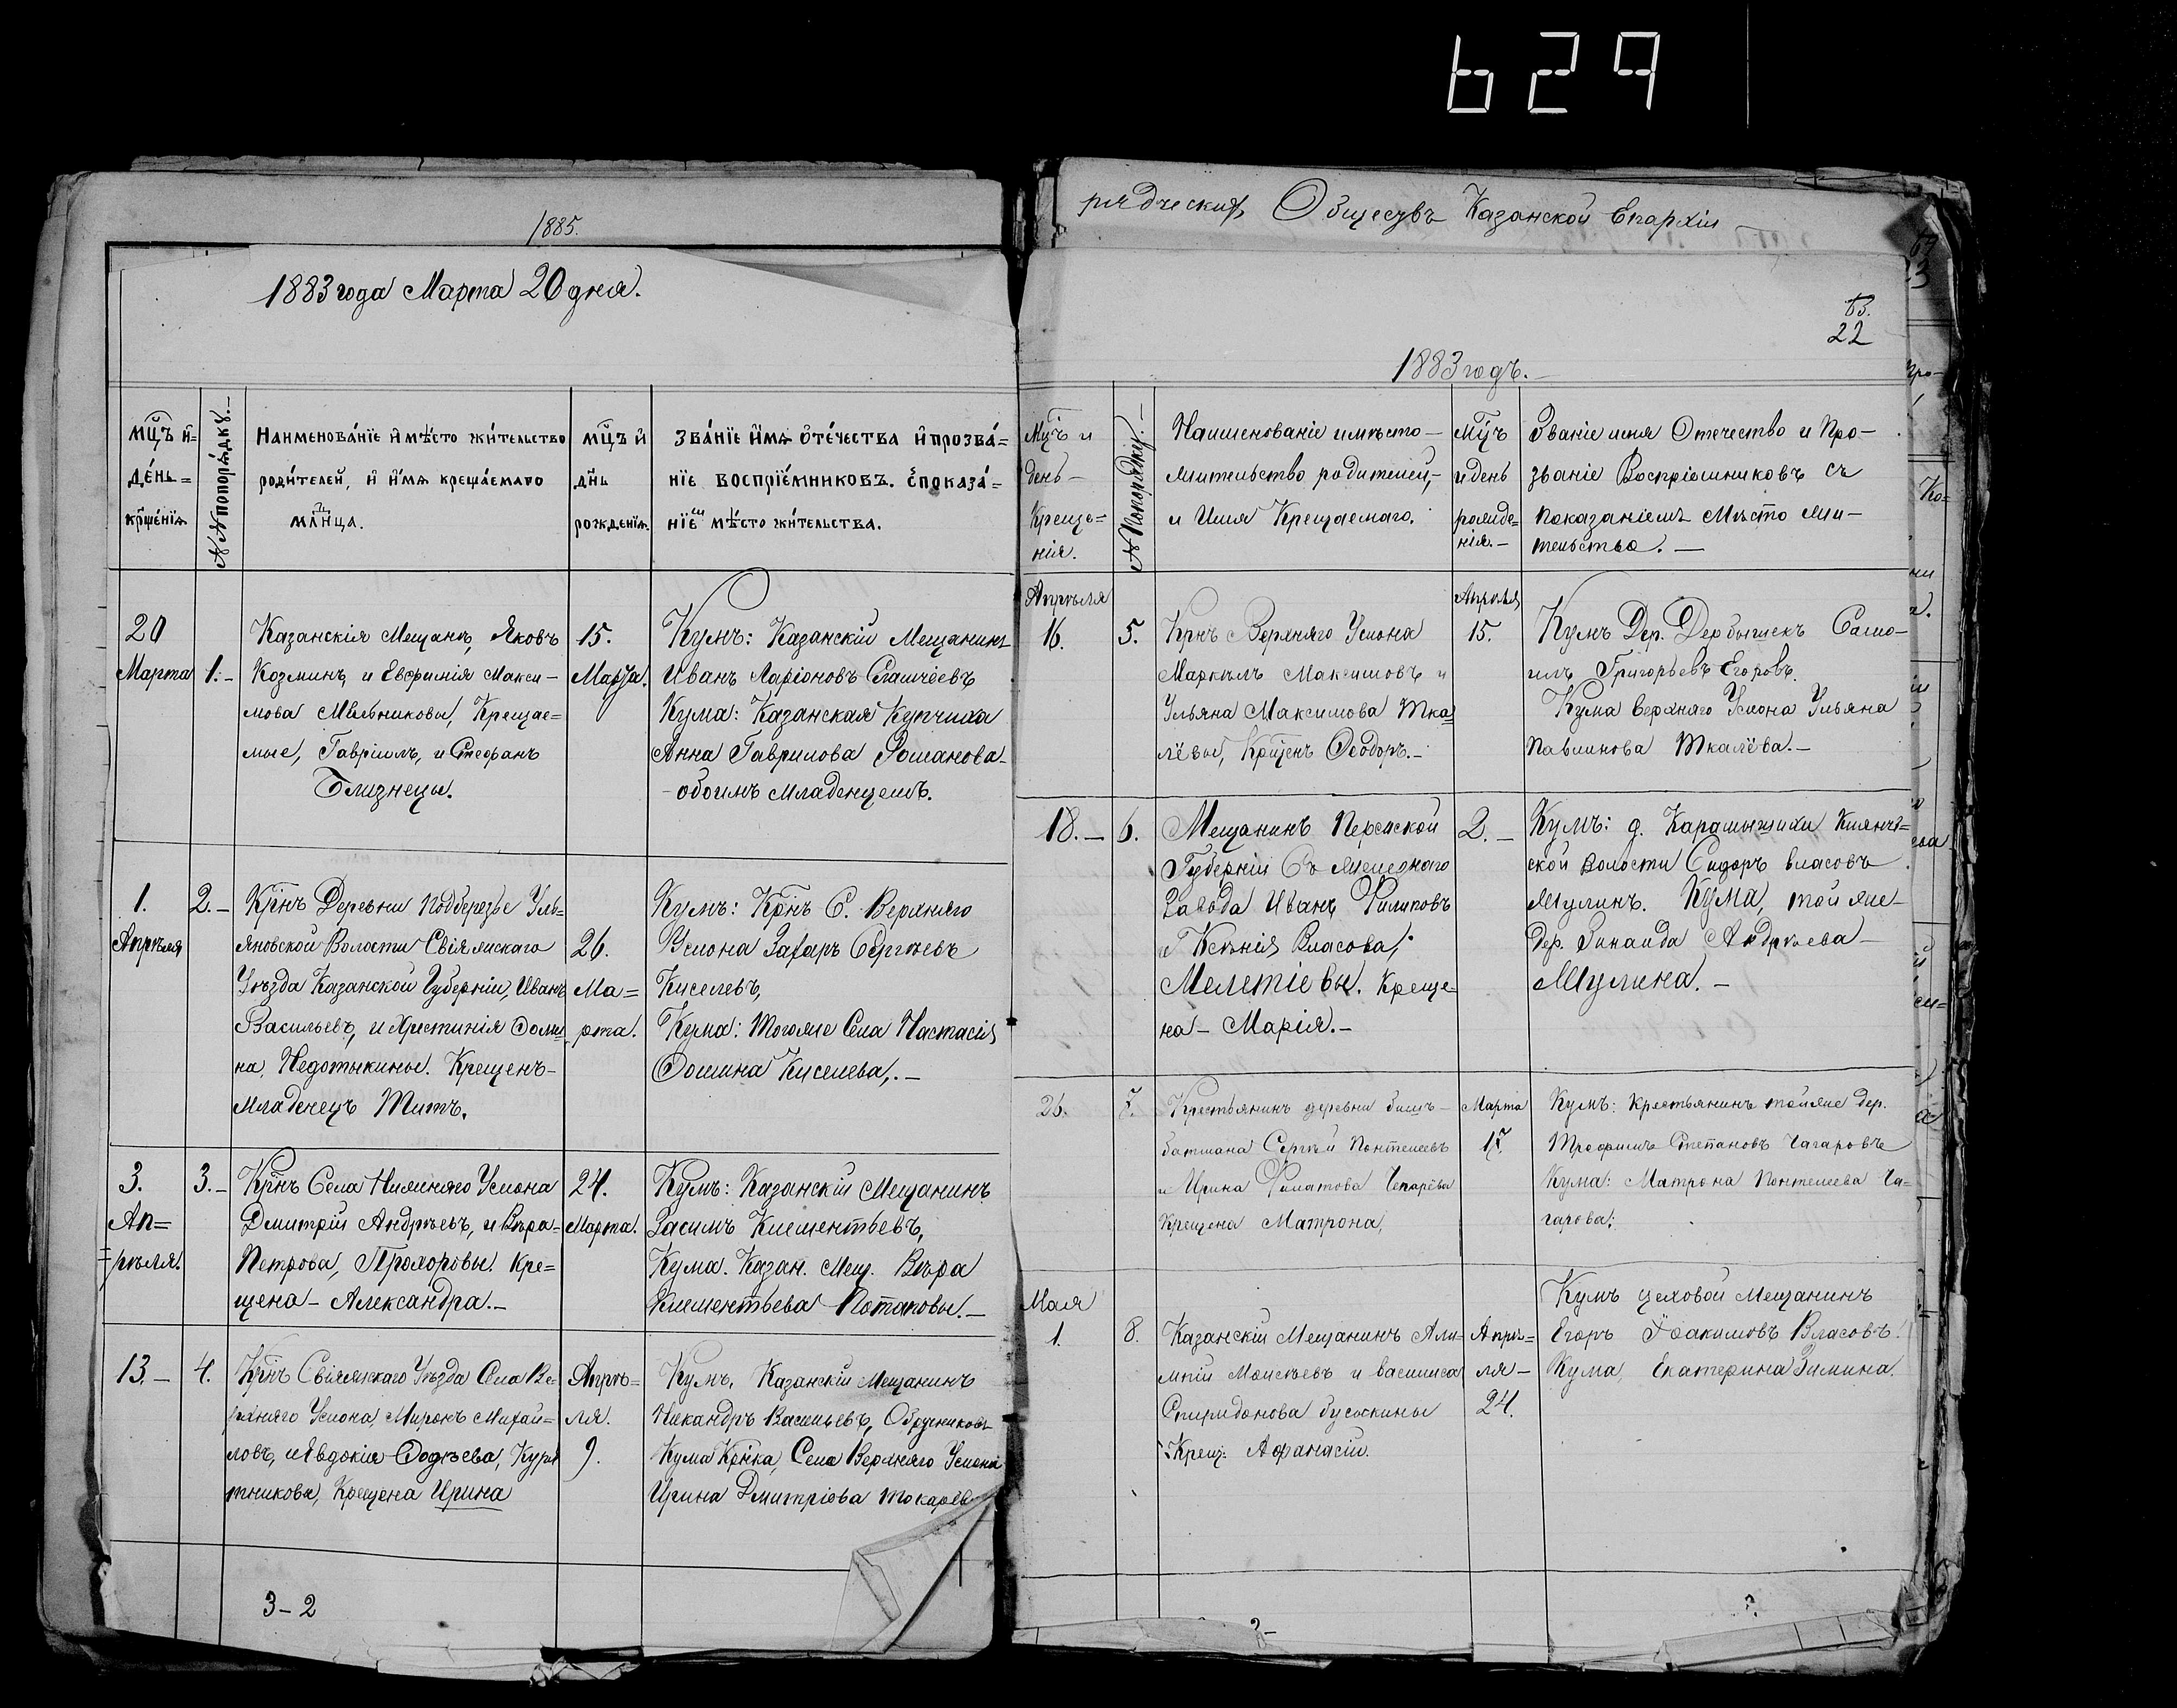 629
1885.
1883 года Марта 20 дня.
мц҃ъ и҆=
де́нь=
крщ҃е́нїѧ
№№ попоря́дкꙋ.-
Наименова́нїе и҆ мѣ́сто жи́тельство
роди́телей, и҆ и҆́мѧ креща́емаго
млнца.
мц҃ъ и҆
дн҃ь
рожде́нїѧ.
зва́нїе и҆́мѧ ѻ҆те́чества и҆ прозва́=
нїе воспрїе́мниковъ. с̾показа́=
нїе мѣ́сто жи́тельства.
20
Марта
1.-
Казанскія Мещане, Яковъ
Козминъ, и Евѳимія Макси-
мова Мельниковы, Крещае=
мые, Гавріилъ, и Стефанъ
Близнецы.
15.
Марта.
Кумъ: Казанскій Мещанинъ
Иванъ Ларіоновъ
Кума: Казанская Купчиха
Анна Гаврилова Романова-
-обоимъ младенцемъ.
1.
Апрѣля
2.-
Крнъ Деревни Подберезье Уль=
яновской Волости Свіяжскаго
Уѣзда Казанской Губерніи, Иванъ
Васильевъ, и Христинія Ѳоми=
на, Недотыкины. Крещенъ-
младенецъ Титъ.
26.
Ма=
рта.
Кумъ: Крнъ С. Верхняго
Услона Захаръ Сергѣевъ
Киселевъ,
Кума: Тогоже Села Настасія
Ѳомина Киселева,.-
3.
Ап=
рѣля.
3.-
Крнъ Села Нижняго Услона
Дмитрій Андрѣевъ, и Вѣра-
Петрова, Прохоровы. Кре=
щена- Александра.-
24.
Марта.
Кумъ: Казанскій Мещанинъ
Засимъ Клементьевъ,
Кума. Казан. Мещ. Вѣра
Клементьева Потаповы.-
13.-
4.
Крнъ Свіяжскаго Уѣзда Села Ве=
рхняго Услона, Миронъ Михай=
ловъ, и Явдокия Ѳадѣева, Куря
тникова, Крещена Ирина
Апрѣ=
ля.
9.
Кумъ, Казанскій Мещанинъ
Никандръ Васильевъ, Обручниковъ
Кума Крнка, Села Верхняго Услона
Ирина Дмитріева Токарёв
3-2
рядческихъ Обществъ Казанской Епархіи
63.
22
1883 годъ.-
Мцъ и
день-
Креще=
нія.
№ Попорядку.-
Наименованіе и мѣсто-
жительство родителей,-
и Имя Крещаемаго.
Мцъ
и день
рожде=
нія.-
Званіе имя Отечество и Про-
званіе Воспріемниковъ съ
показаніемъ Мѣсто жи-
тельства.-
Апрѣля
16.
5.
Крнъ Верхняго Услона
Маркелъ Максимовъ и
Ульяна Максимова Тка=
лёвы, Крщенъ Ѳеодоръ.-
Апрѣля
15.
Кумъ Дер. Дербышекъ Само-
илъ Григорьевъ Егоровъ.
Кума Верхняго Услона Ульяна
Павлинова Ткалёва.-
18.-
6.
Мещанинъ Пермской
Губерніи
Завода Иванъ Филиповъ
и Ксѣнія Власова,
Мелетіевы. Креще-
на- Марія.-
2.-
Кумъ: д. Карамышихи
ской Волости Сидоръ Власовъ
Мулинъ. Кума, той же-
Дер. Зинаида Андрѣева-
Мулина.-
26.
7.
Крестьянинъ деревни
батмана Сергѣй Пентелеевъ
и Ирина Филатова
Крещена Матрона,
Марта
17.
Кумъ: Крестьянинъ тойже дер.
Трофимъ Степановъ Чагаровъ
Кума: Матрона Пентелеева Ча=
гарова;
Мая
1.
8.
Казанскій Мещанинъ Али=
мпій Моисѣевъ и Василиса
Спиридонова
Крещ: Аѳанасій.
Апрѣ=
ля-
24.
Кумъ цеховой Мещанинъ
Егоръ Іоакимовъ Власовъ.
Кума, Екатерина Зимина.